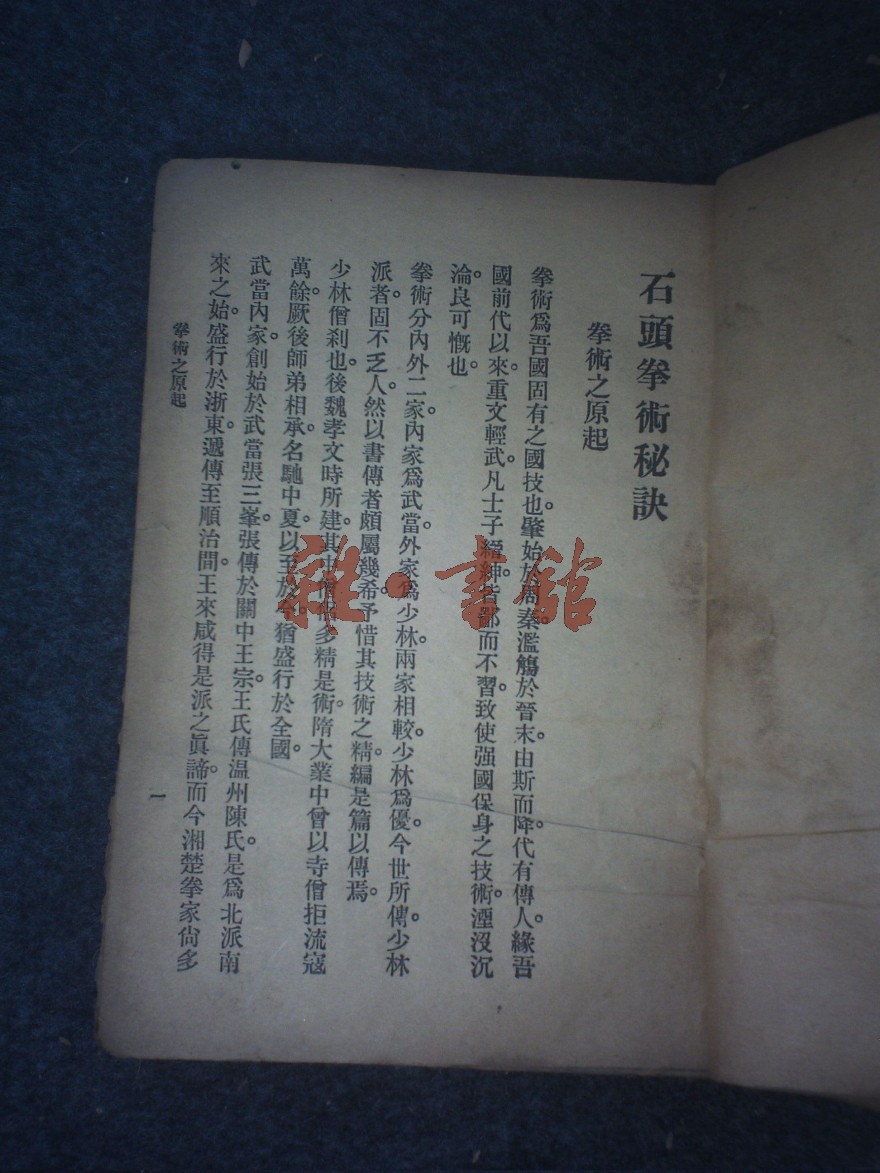 石頭拳術秘訣
拳術之原起
拳術爲吾國固有之國技也。肇始於周秦。濫觴於晉末。由斯而降。代有傳人。緣吾
國前代以來。重文輕武。凡士子縉紳。皆鄙而不習。致使强國保身之技術。湮沒沉
淪。良可慨也。
拳術分內外二家。內家爲武當。外家爲少林。兩家相較。少林爲優。今世所傳。少林
派者固不乏人。然以書傳者頗屬幾希。予惜其技術之精。編是篇以傳焉。
少林僧刹也。後魏孝文時所建。其中僧多精是術。隋大業中曾以寺僧拒流寇
萬餘。厥後師弟相承。名馳中夏。以至於今。猶盛行於全國。
武當內家。創始於武當張三峯。張傳於關中王宗。王氏傳温州陳氏。是爲北派南
來之始。盛行於浙東。遞傳至順治間。王來咸得是派之眞諦。而今湘楚拳家尙多
拳術之原起
一
雜·書館